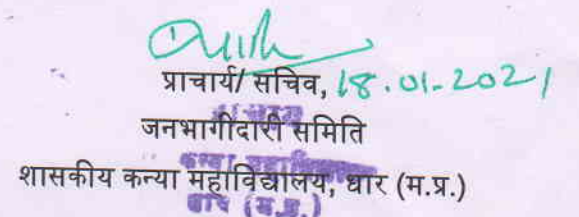 प्राचार्य/ सचिव, 18.01-2021
जनभागीदारी समिति
शासकीय कन्या महाविद्यालय, धार (म.प्र.)
धार (म.प्र.)